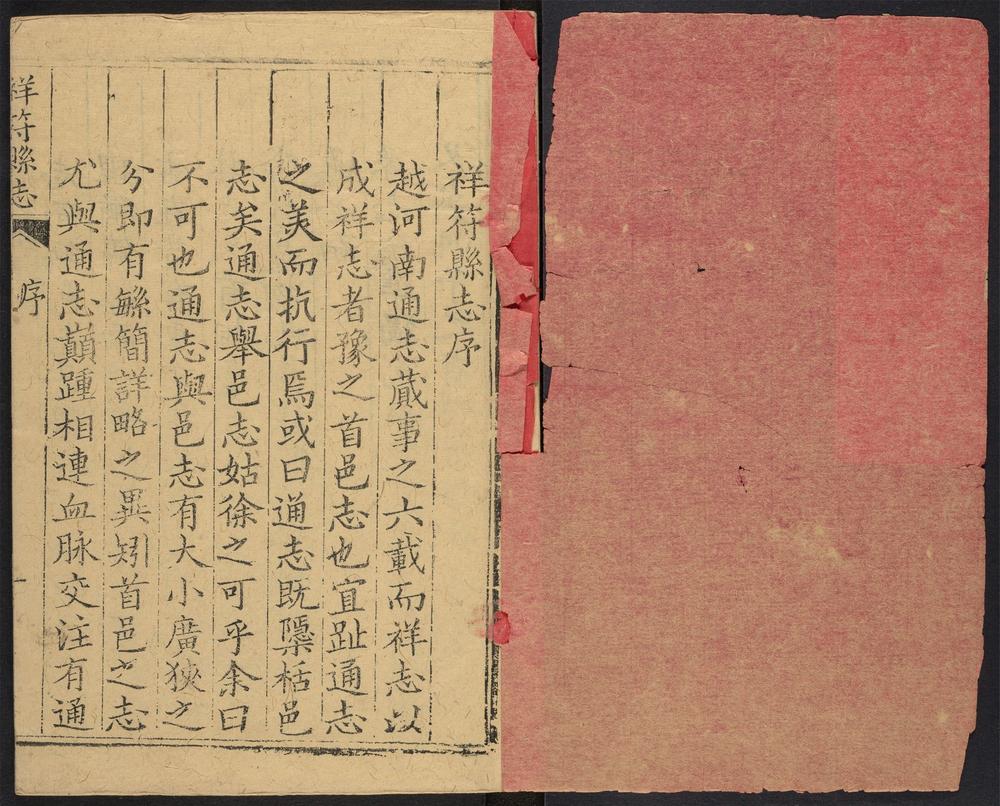 祥符縣志序
越河南通志蕆事之六載而祥志以
成祥志者豫之首邑志也宜趾通志
之美而抗行焉或曰通志既櫽栝邑
志矣通志舉邑志姑徐之可乎余曰
不可也通志與邑志有大小廣狹之
分即有緐簡詳略之異矧首邑之志
尤與通志巔踵相連血脉交注有通
祥符縣志 序 一